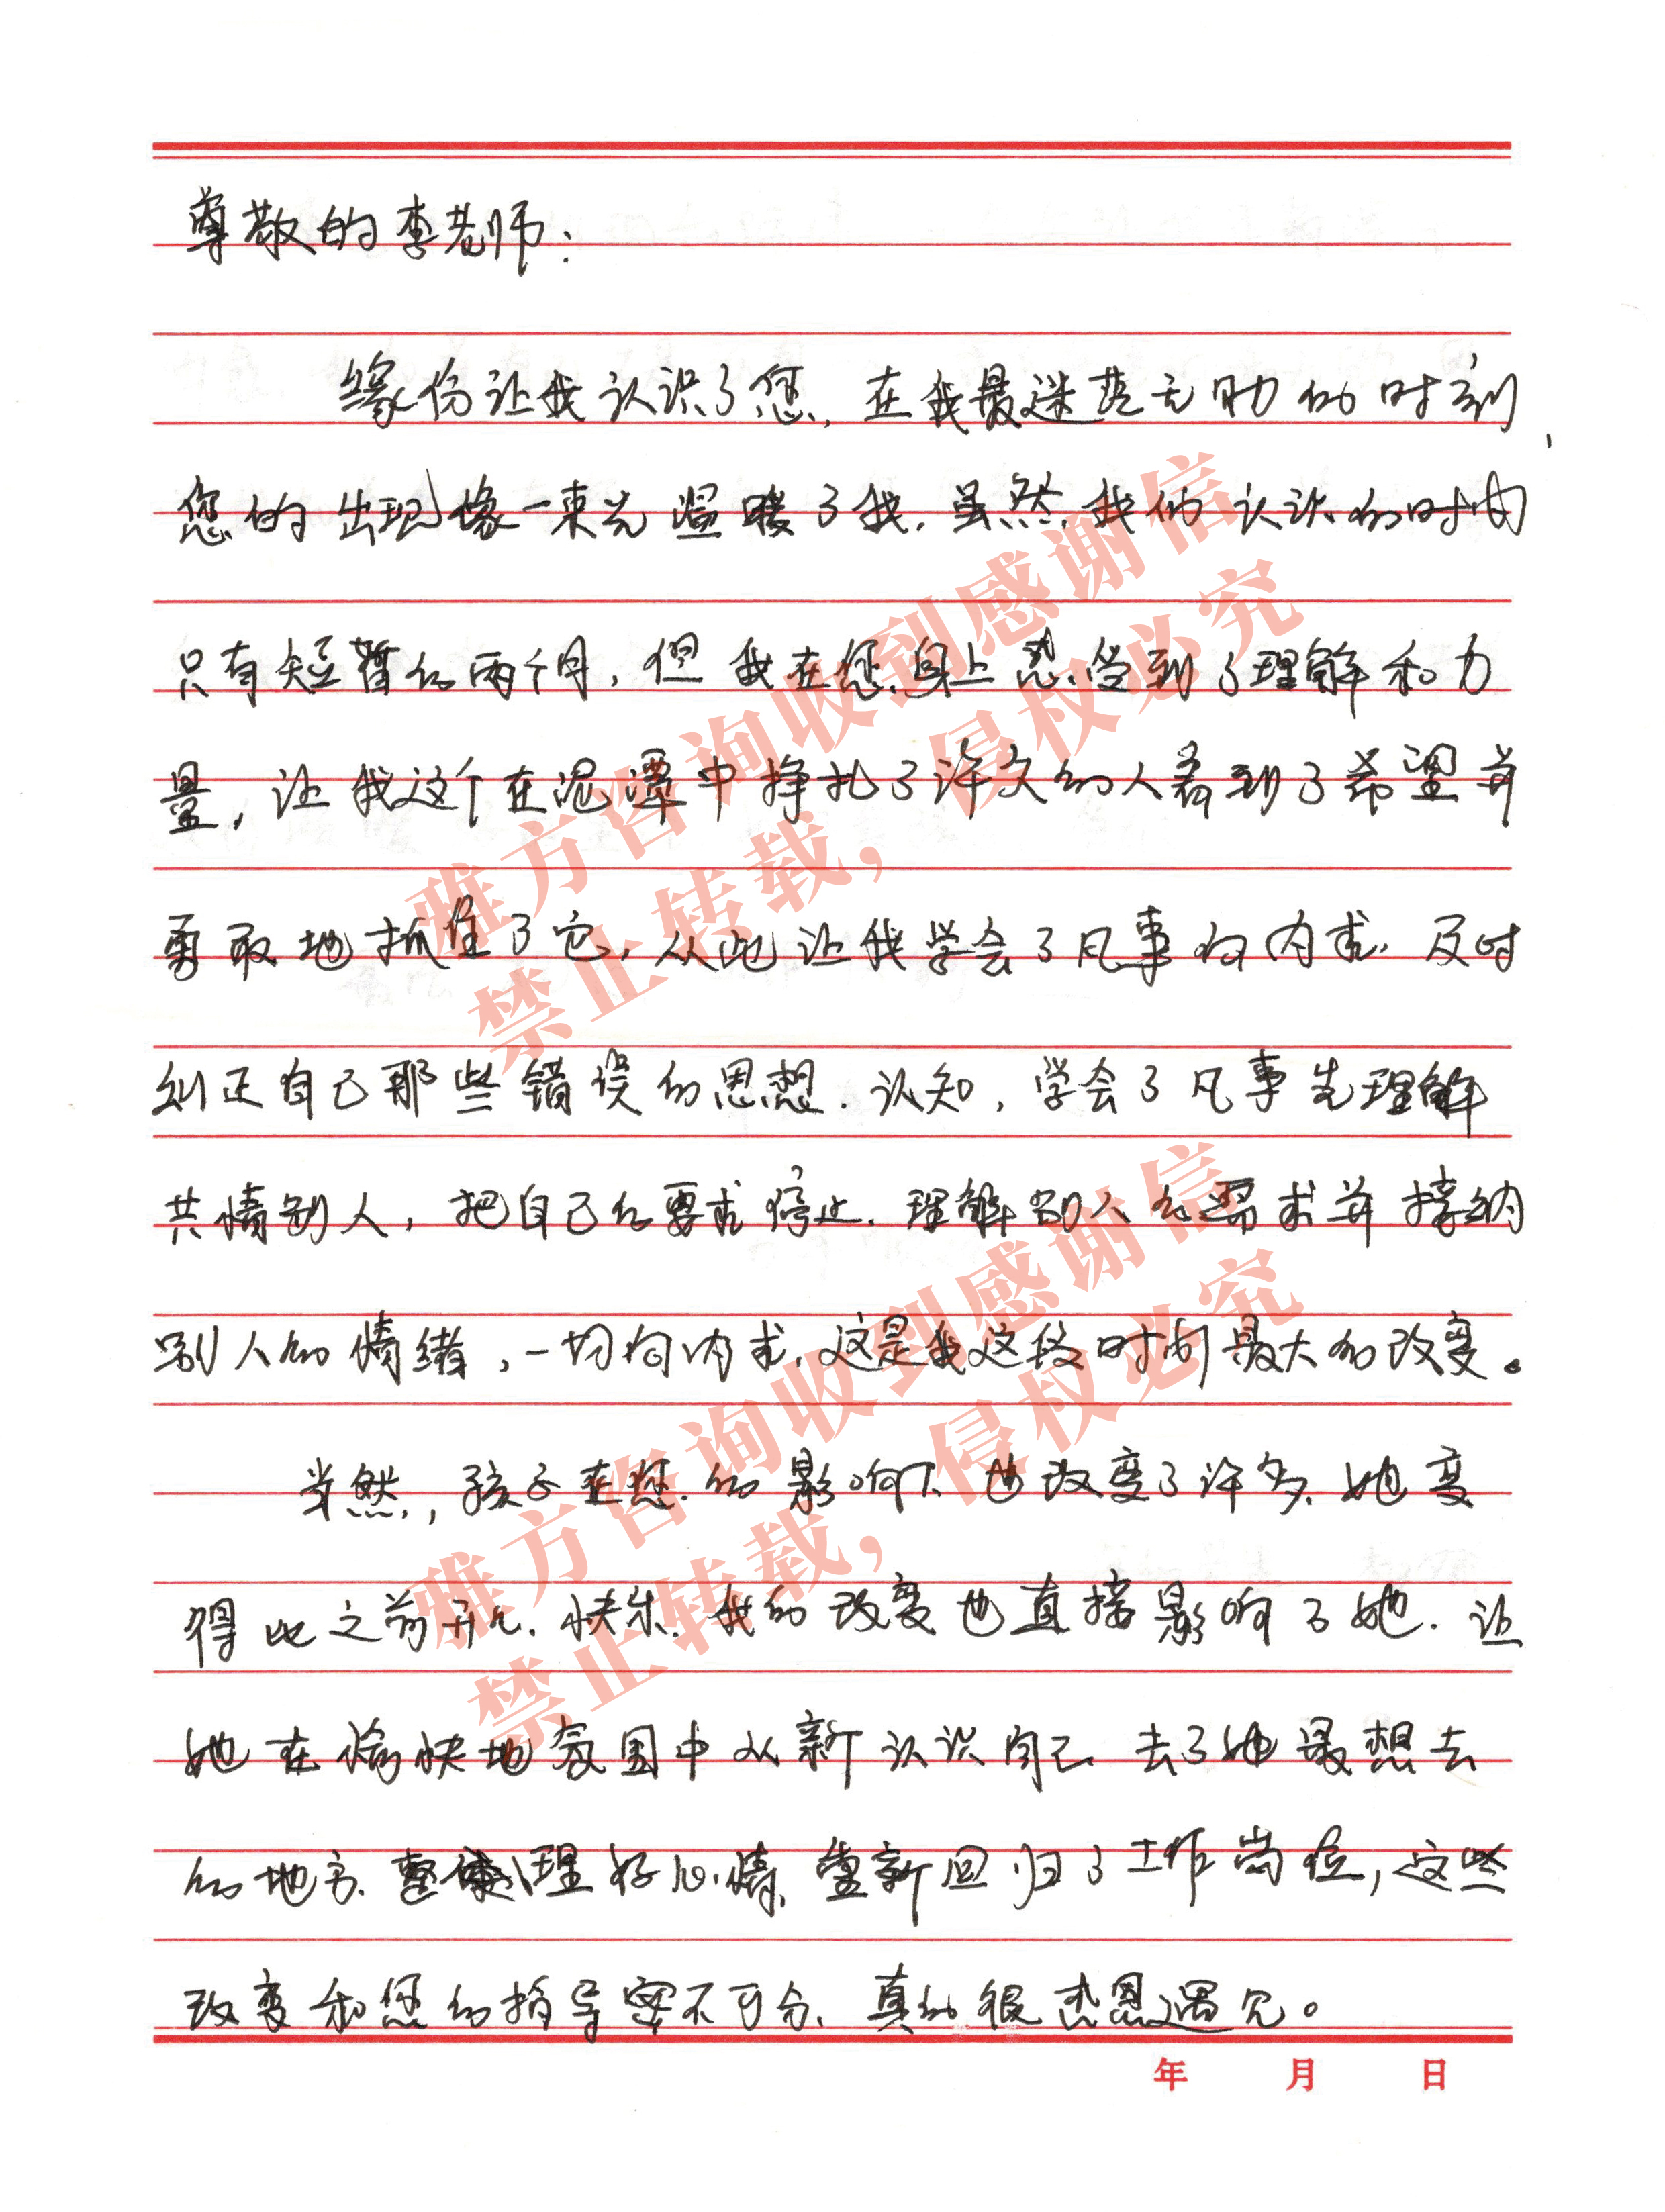 尊敬的李老师：
缘份让我认识了您，在我最迷茫无助的时刻，
您的出现像一束光温暖了我，虽然我们认识的时间
只有短暂的两个月，但我在您身上感受到了理解和力
量，让我这个在泥潭中挣扎了许久的人看到了希望并
勇敢地抓住了它，从此让我学会了凡事向内求，及时
纠正自己那些错误的思想、认知，学会了凡事先理解
共情别人，把自己的要求停止，理解别人的需求并接纳
别人的情绪，一切向内求，这是我这段时间最大的改变。
当然，孩子在您的影响下也改变了许多，她变
得比之前开心、快乐，我的改变也直接影响了她，让
她在愉快地氛围中从新认识自己，去了她最想去
的地方，整理好心情，重新回归了工作岗位，这些
改变和您的指导密不可分，真的很感恩遇见。
年 月 日
雅方咨询收到感谢信
禁止转载，侵权必究
雅方咨询收到感谢信
禁止转载，侵权必究